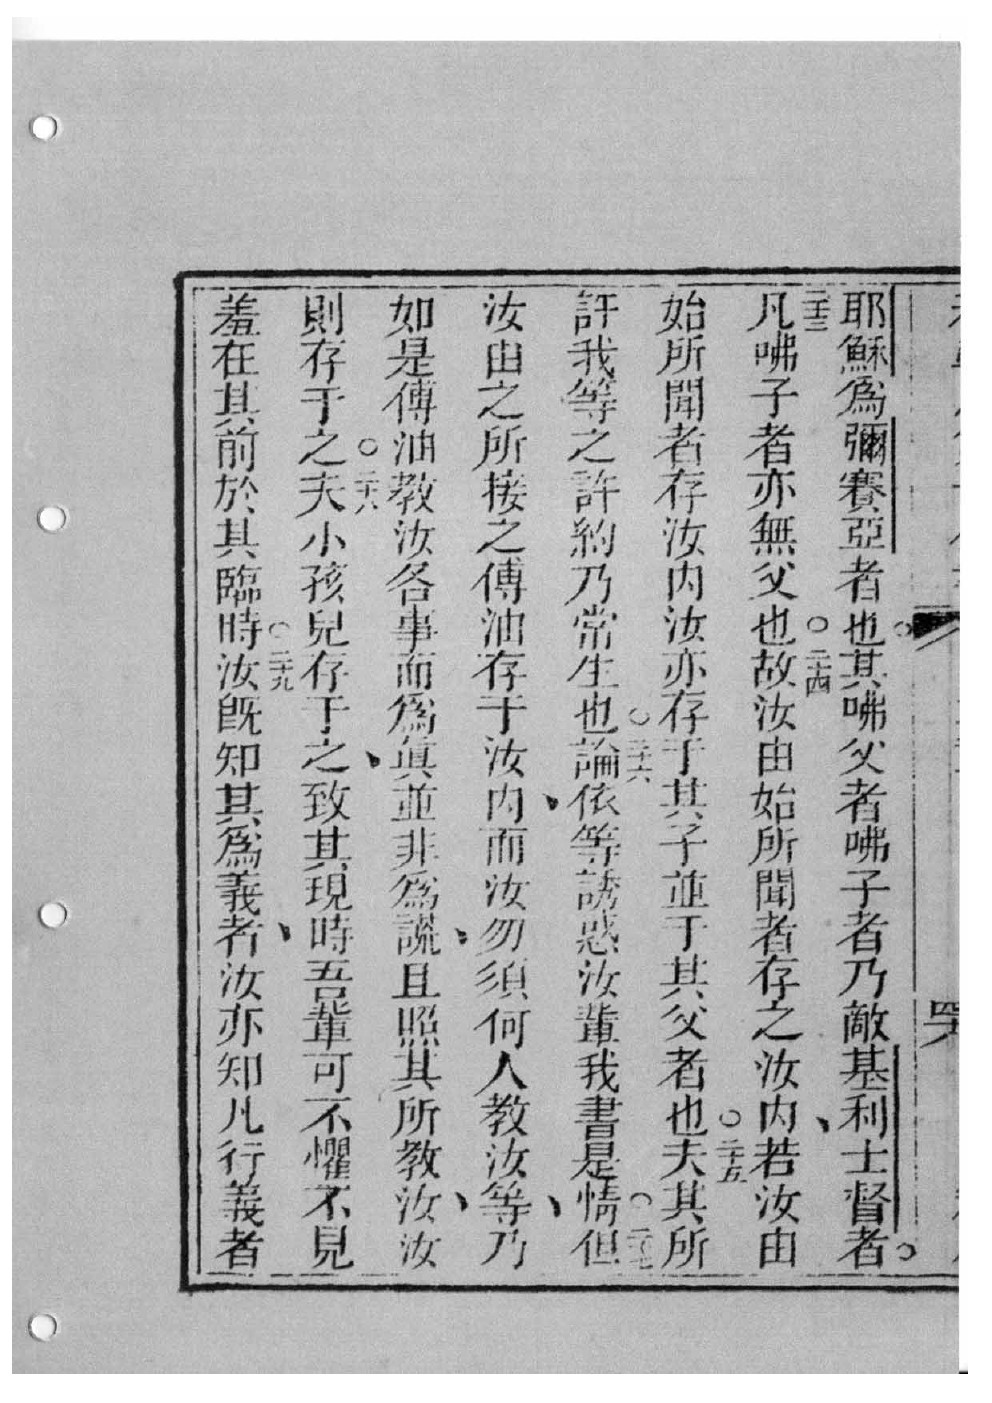 耶穌爲彌賽亞者也。其咈父者咈子者乃敵基利士督者。
二十三凡咈子者亦無父也。二十四故汝由始所聞者存之汝內、若汝由
始所聞者存汝內汝亦存于其子並于其父者也。二十五夫其所
許我等之許約乃常生也。二十六論依等誘惑汝輩我書是情。二十七但
汝由之所接之傅油存于汝內、而汝勿須何人教汝等、乃
如是傅油教汝各事而爲眞並非爲謊、且照其所教汝、汝
則存于之。二十八夫小孩兒存于之、致其現時吾輩可不懼不見
羞在其前於其臨時。二十九汝旣知其爲義者、汝亦知凡行義者